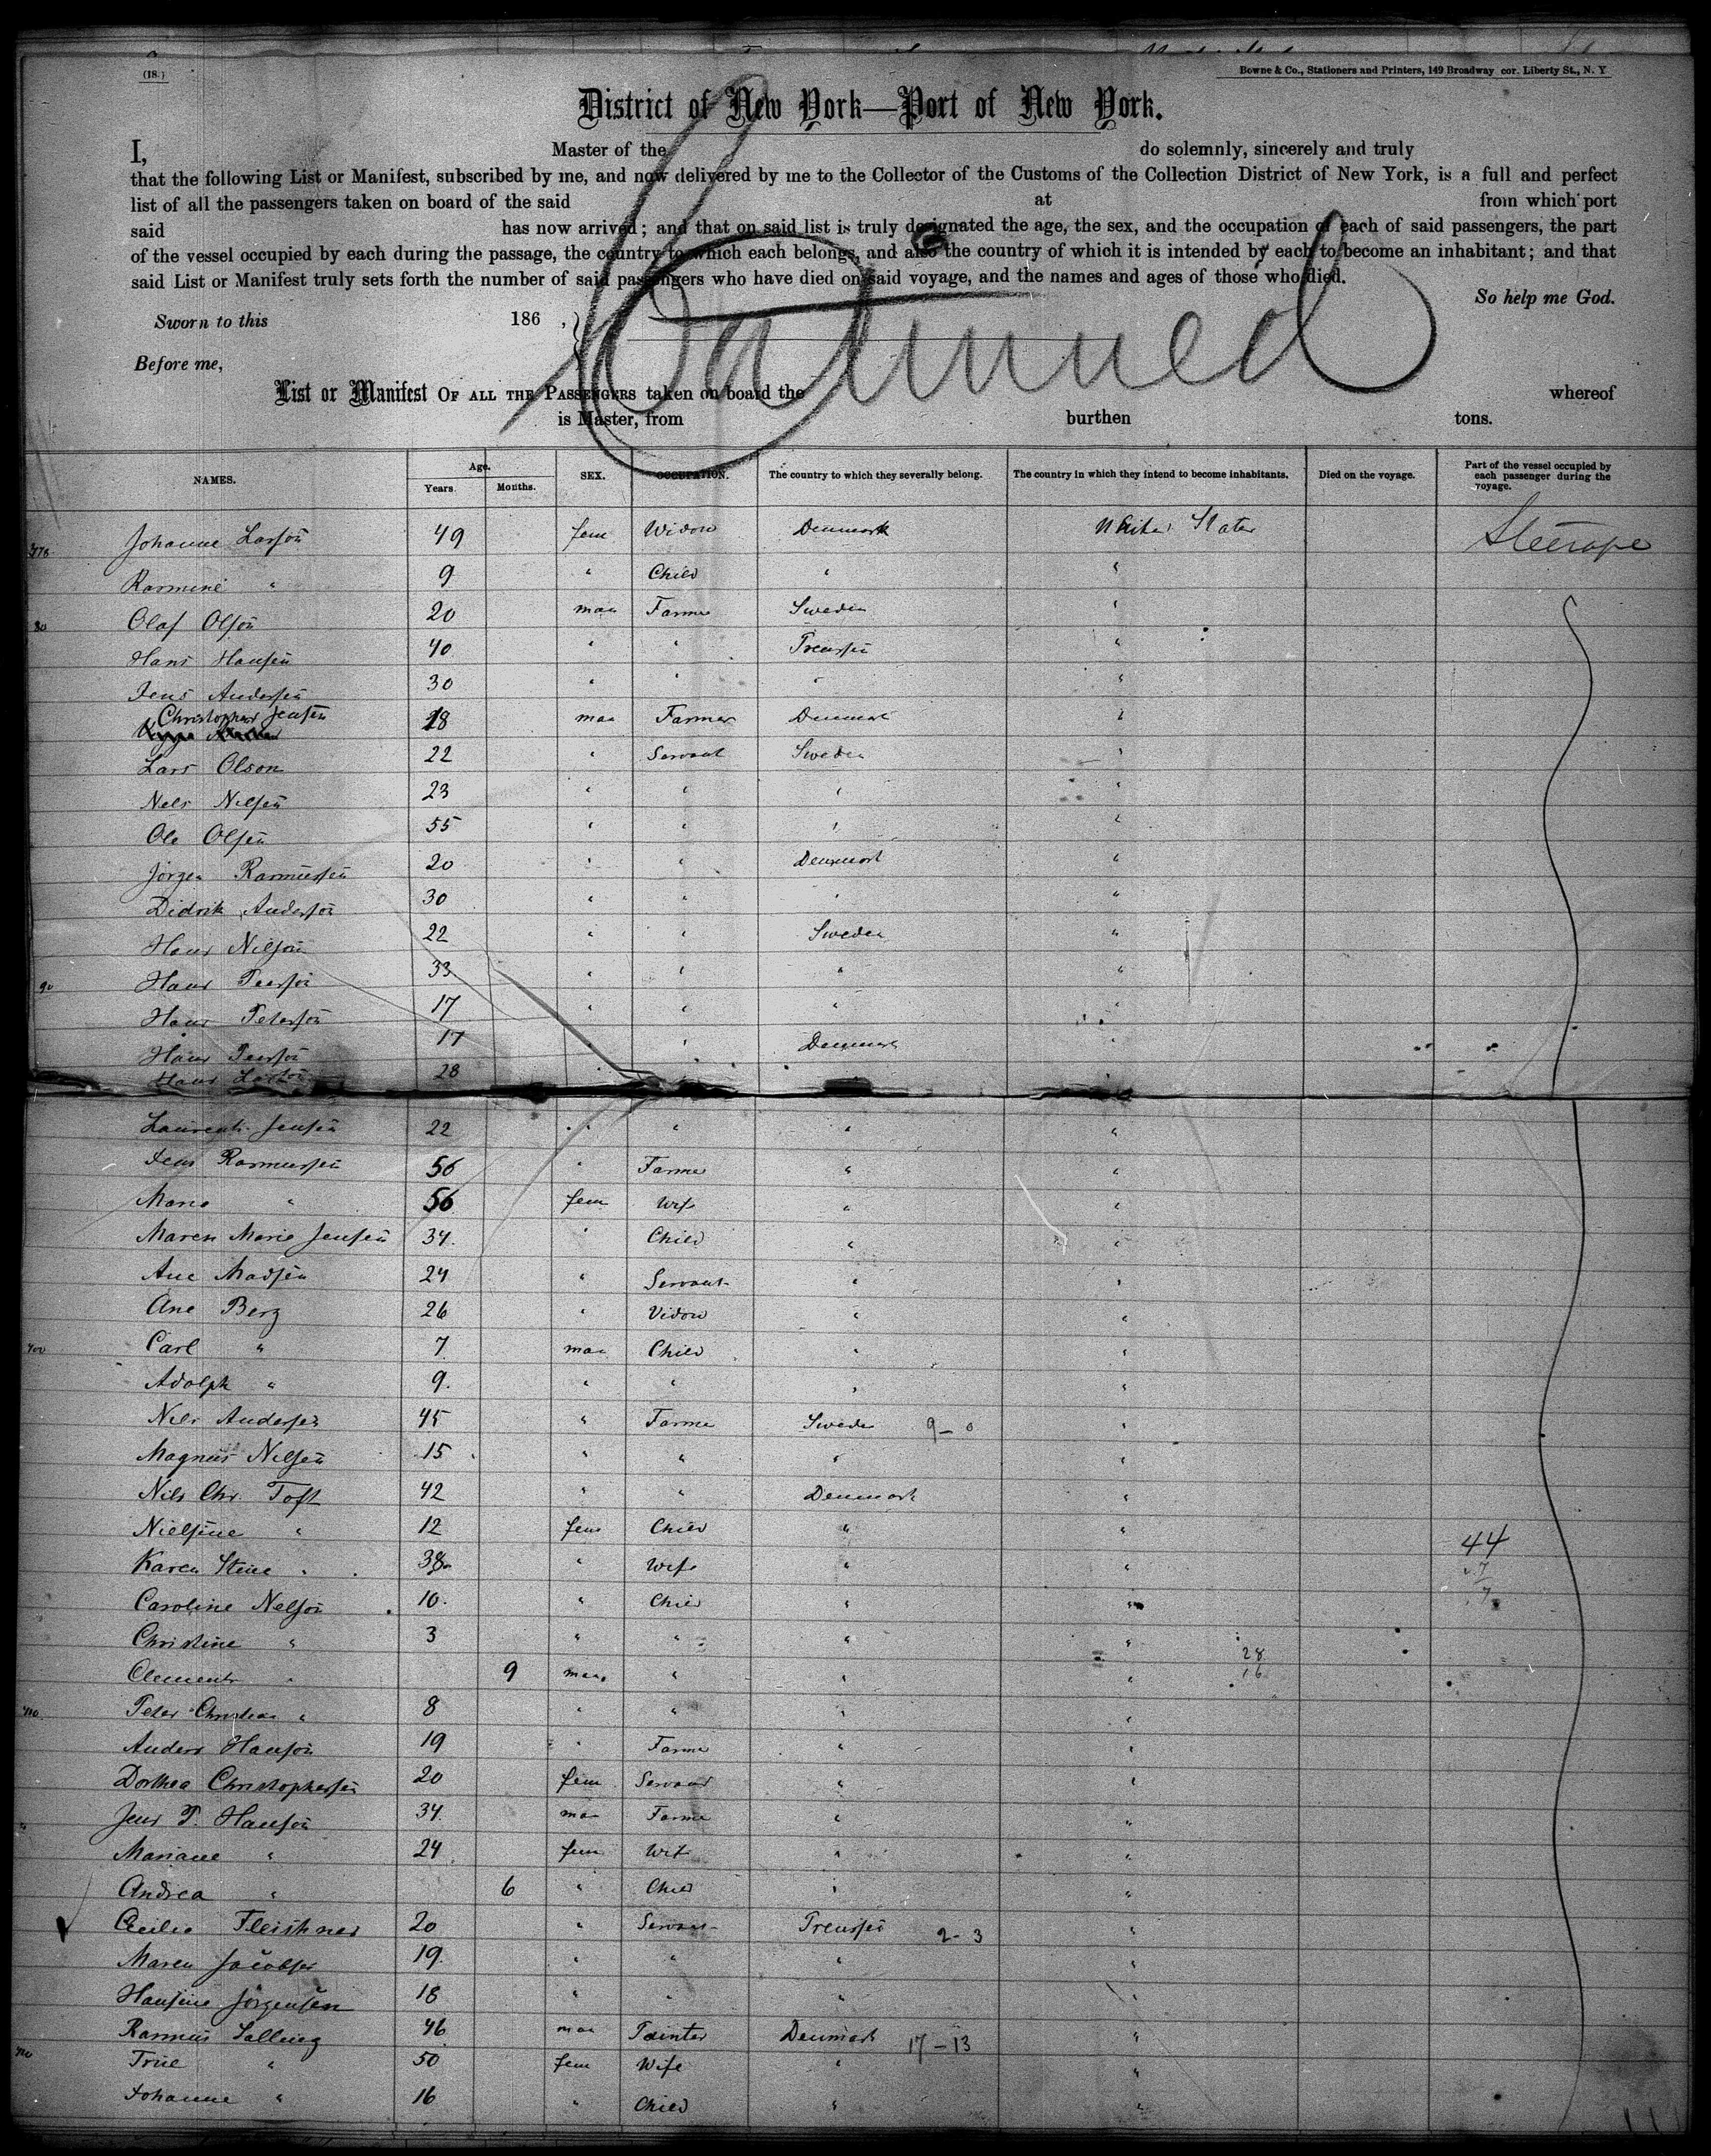 (18.)
Bowne & Co., Stationers and Printers, 149 Broadway cor. Liberty St., N. Y
District of New York—Port of New York.
I, Master of the do solemnly, sincerely and truly
that the following List or Manifest, subscribed by me, and now delivered by me to the Collector of the Customs of the Collection District of New York, is a full and perfect
list of all the passengers taken on board of the said at from which port
said has now arrived; and that on said list is truly designated the age, the sex, and the occupation of each of said passengers, the part
of the vessel occupied by each during the passage, the country to which each belongs, and also the country of which it is intended by each to become an inhabitant; and that
said List or Manifest truly sets forth the number of said passengers who have died on said voyage, and the names and ages of those who died.
So help me God.
Sworn to this 186 ,
Before me,
List or Manifest OF ALL THE PASSENGERS taken on board the whereof
is Master, from burthen tons.
NAMES. Age. Years. Months. SEX. OCCUPATION. The country to which they severally belong. The country in which they intend to become inhabitants. Died on the voyage. Part of the vessel occupied by each passenger during the voyage.
Johanne Larson 49 fem Widow Denmark United States Steerage
Rasmine " 9 " Child " "
80 Olaf Olson 20 man Farmer Sweden "
Hans Hansen 40 " " Preussen "
Jens Andersen 30 " " " "
Christopher Jensen 18 man Farmer Denmark "
Lars Olson 22 " Servant Sweden "
Nels Nelsen 23 " " " "
Ole Olsen 55 " " " "
Jörgen Rasmussen 20 " " Denmark "
Didrik Anderson 30 " " " "
Hans Nilson 22 " " Sweden "
90 Hans Peerson 33 " " " "
Hans Peterson 17 " " " "
Hans Peerson 17 " " Denmark "
Hans 28 " " " "
Jensen 22 " " " "
Jens Rasmussen 56 " Farmer " "
Marie " 56 fem Wife " "
Maren Marie Jensen 34 " Child " "
Ane Madsen 24 " Servant " "
Ane Berg 26 " Vidow " "
400 Carl " 7 man Child " "
Adolph " 9 " " " "
Nils Andersen 45 " Farmer Sweden 9–0 "
Magnus Nelsen 15 " " " "
Nils Chr. Toft 42 " " Denmark "
Nielsine " 12 fem Child " " 44
Karen Stine " 38 " Wife " "
Caroline Nelson 10 " Child " "
Christine " 3 " " " " 28
Clement " 9 man " " " 16
410 Peter Christian " 8 " " " "
Anders Hanson 19 " Farmer " "
Dorthea Christophersen 20 fem Servant " "
Jens P. Hanson 34 man Farmer " "
Mariane " 24 fem Wife " "
Andrea " 6 " Child " "
Cecilie Fleishner 20 " Servant Preussen 2-3 "
Maren Jacobsen 19 " " " "
Hansine Jörgensen 18 " " " "
Rasmus Salling 46 man Painter Denmark 17–13 "
Trine " 50 fem Wife " "
Johanne " 16 " Child " "